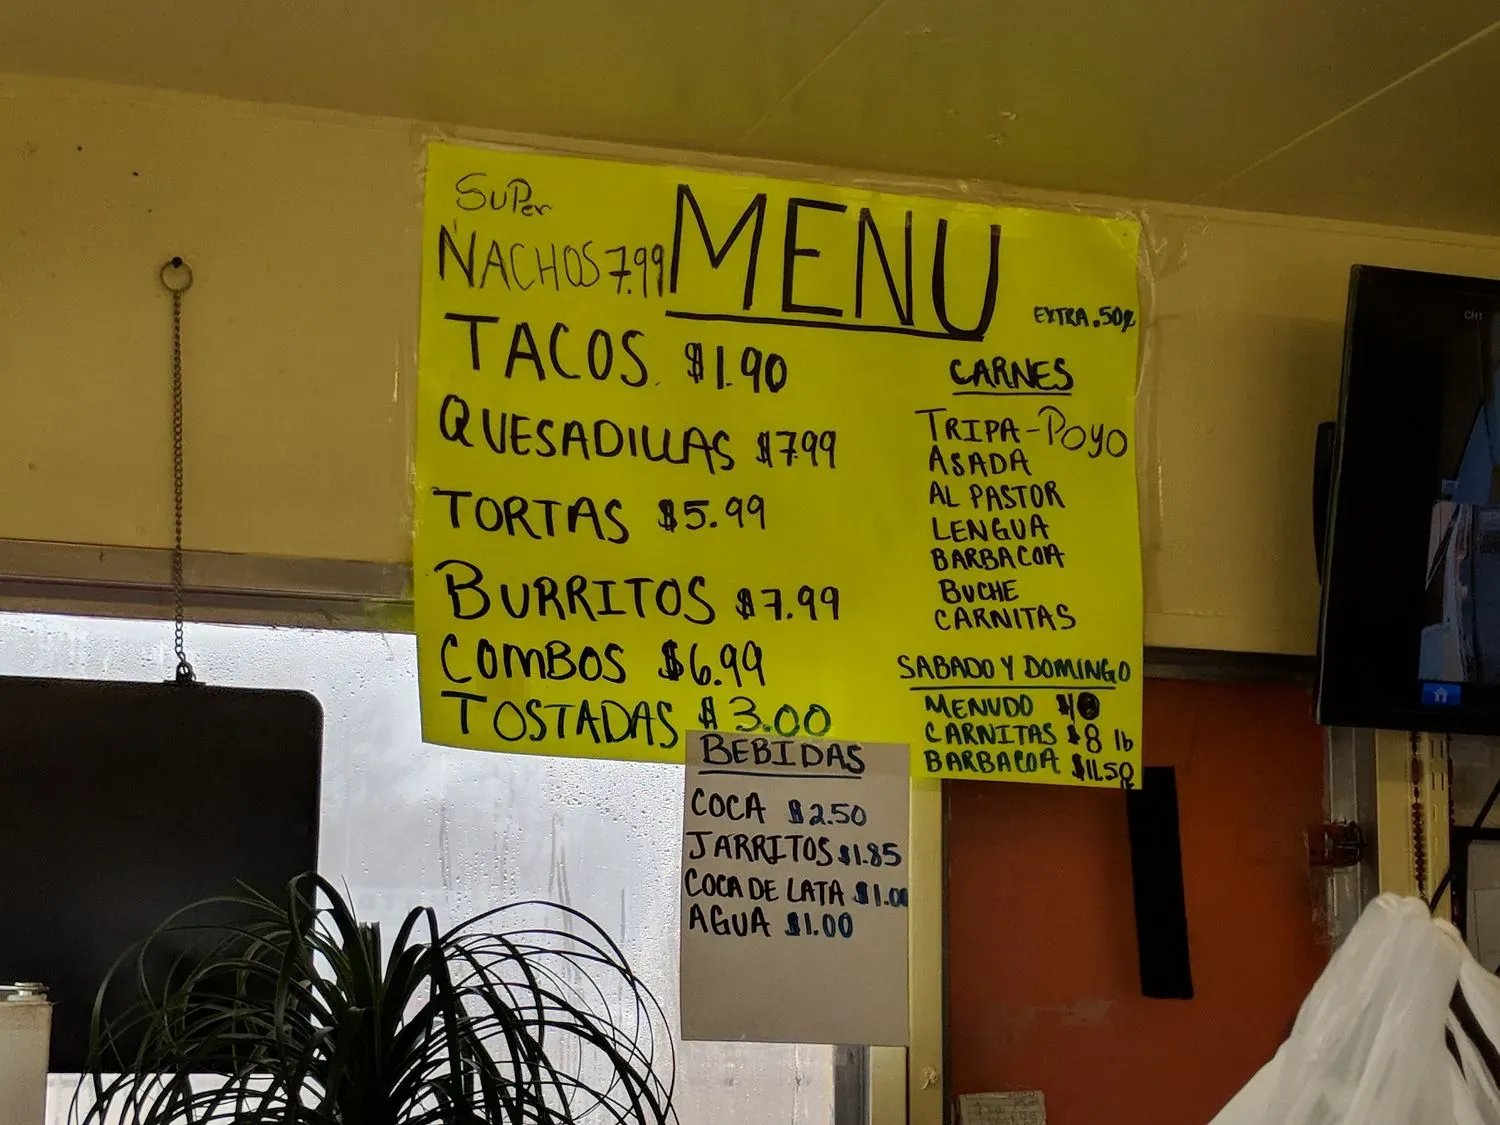 SUPer
NACHOS 7.99
MENU
TACOS. $1.90
QUESADILLAS $7.99
TORTAS $5.99
BURRITOS $7.99
COMBOS $6.99
TOSTADAS $3.00
EXTRA .50¢
CARNES
TRIPA-POYO
ASADA
AL PASTOR
LENGUA
BARBACOA
BUCHE
CARNITAS
SABADO Y DOMINGO
MENUDO
CARNITAS $8 lb
BARBACOA $11.50
BEBIDAS
COCA $2.50
JARRITOS $1.85
COCA DE LATA $1.00
AGUA $1.00
CH1